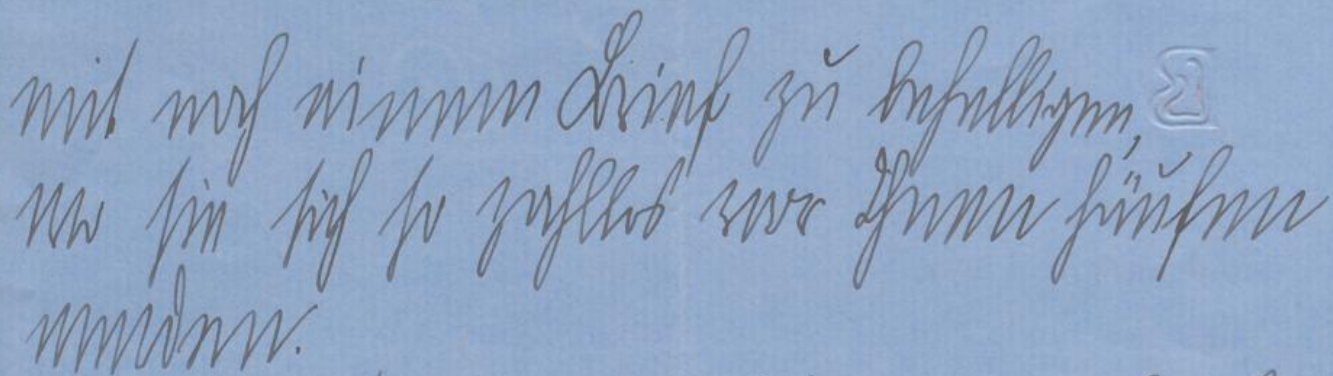 mit noch einem Brief zu behelligen,
wo sie sich so zahllos vor Ihnen häufen
werden.